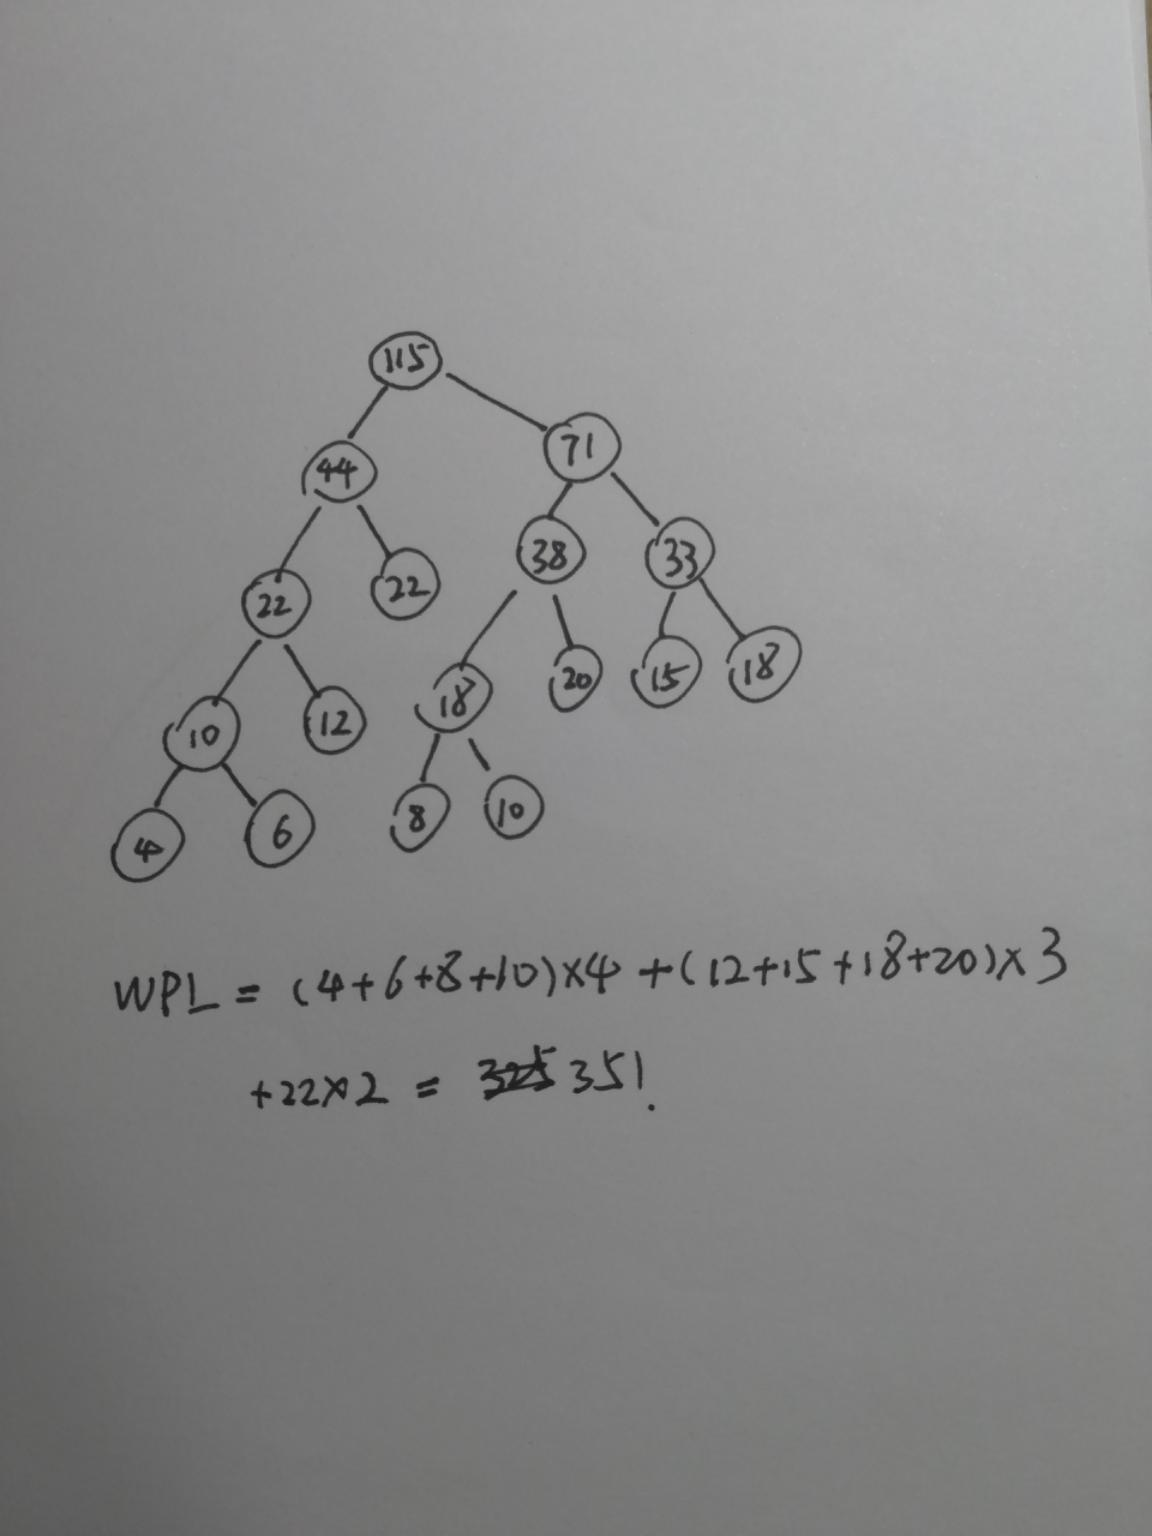 115
44 71
22 22 38 33
10 12 18 20 15 18
4 6 8 10
WPL = (4+6+8+10)×4 +(12+15+18+20)×3
+22×2 = 325 351.